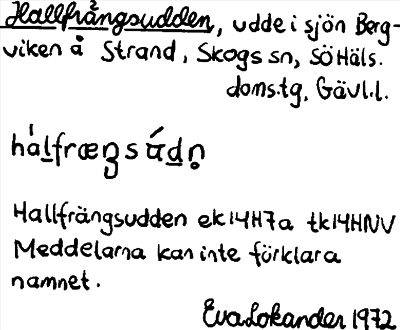 Hallfrångsudden, udde i sjön Berg-
viken å Strand, Skogs sn, Sö Häls.
doms.tg, Gävl.l.
Hallfrängsudden ek14H7a tk14HNV
Meddelarna kan inte förklara
namnet.
Eva Lokander 1972